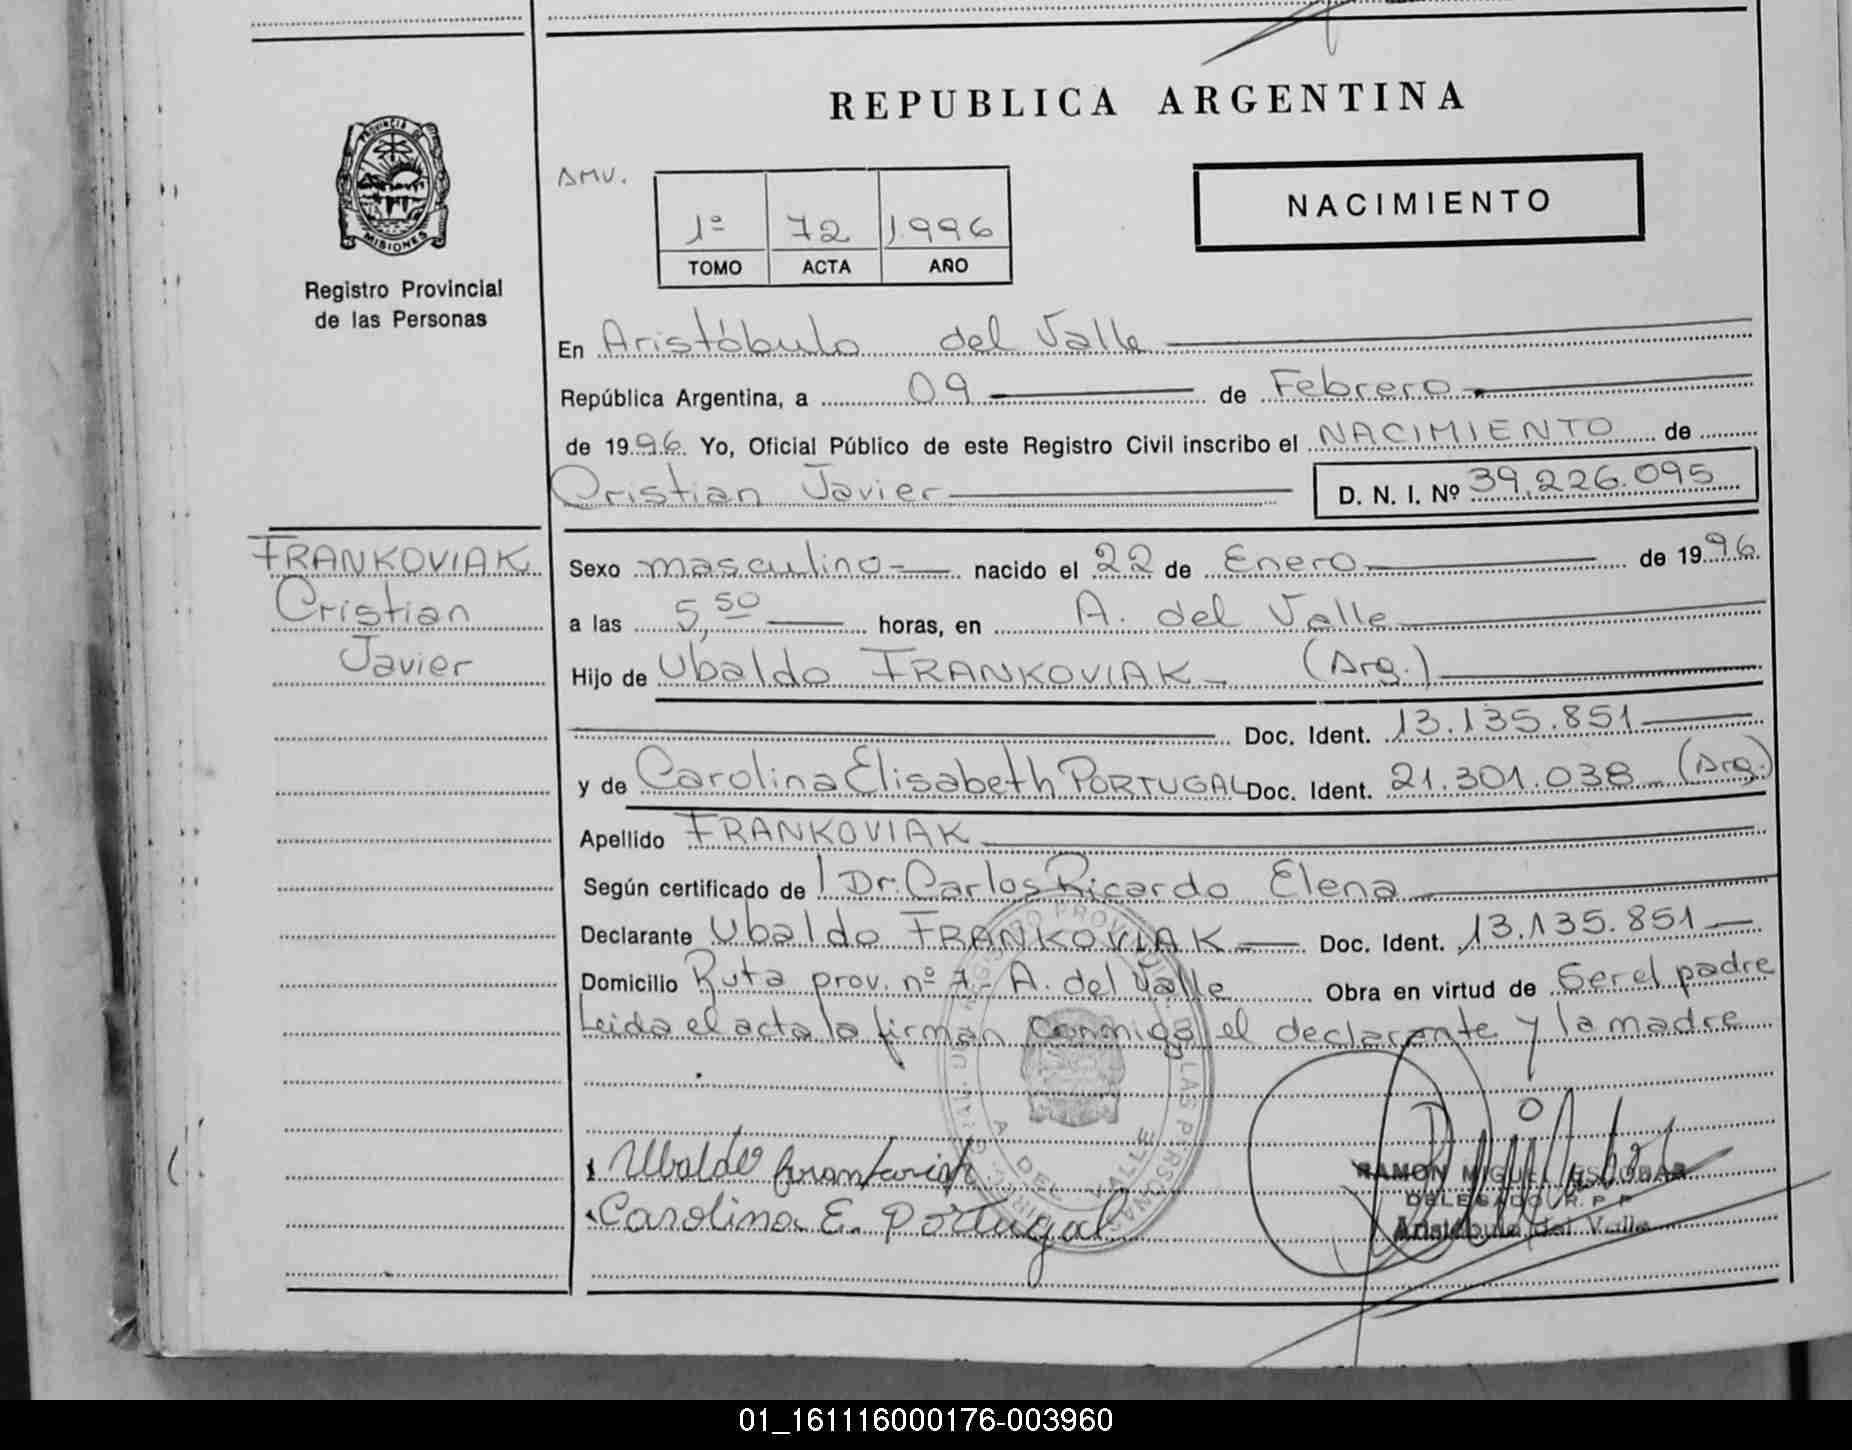 REPUBLICA ARGENTINA
PROVINCIA DE
MISIONES
Registro Provincial
de las Personas
AMV.
1º 72 1996
TOMO ACTA AÑO
NACIMIENTO
En Aristóbulo del Valle
República Argentina, a 09 de Febrero
de 1996. Yo, Oficial Público de este Registro Civil inscribo el NACIMIENTO de
Cristian Javier D. N. I. Nº 39.226.095
FRANKOVIAK
Cristian
Javier
Sexo masculino nacido el 22 de Enero de 1996.
a las 5,50 horas, en A. del Valle
Hijo de Ubaldo FRANKOVIAK (Arg.)
Doc. Ident. 13.135.851
y de Carolina Elisabeth PORTUGAL Doc. Ident. 21.301.038 (Arg.)
Apellido FRANKOVIAK
Según certificado de Dr. Carlos Ricardo Elena
Declarante Ubaldo FRANKOVIAK Doc. Ident. 13.135.851
Domicilio Ruta prov. nº 7. A. del Valle Obra en virtud de Ser el padre
Leida el acta la firman conmigo el declarante y la madre
Ubaldo
Carolina E. Portugal
A. DEL VALLE
RAMON MIGUEL ESCOBAR
DELEGADO R. P. P.
Aristóbulo del Valle
01_161116000176-003960